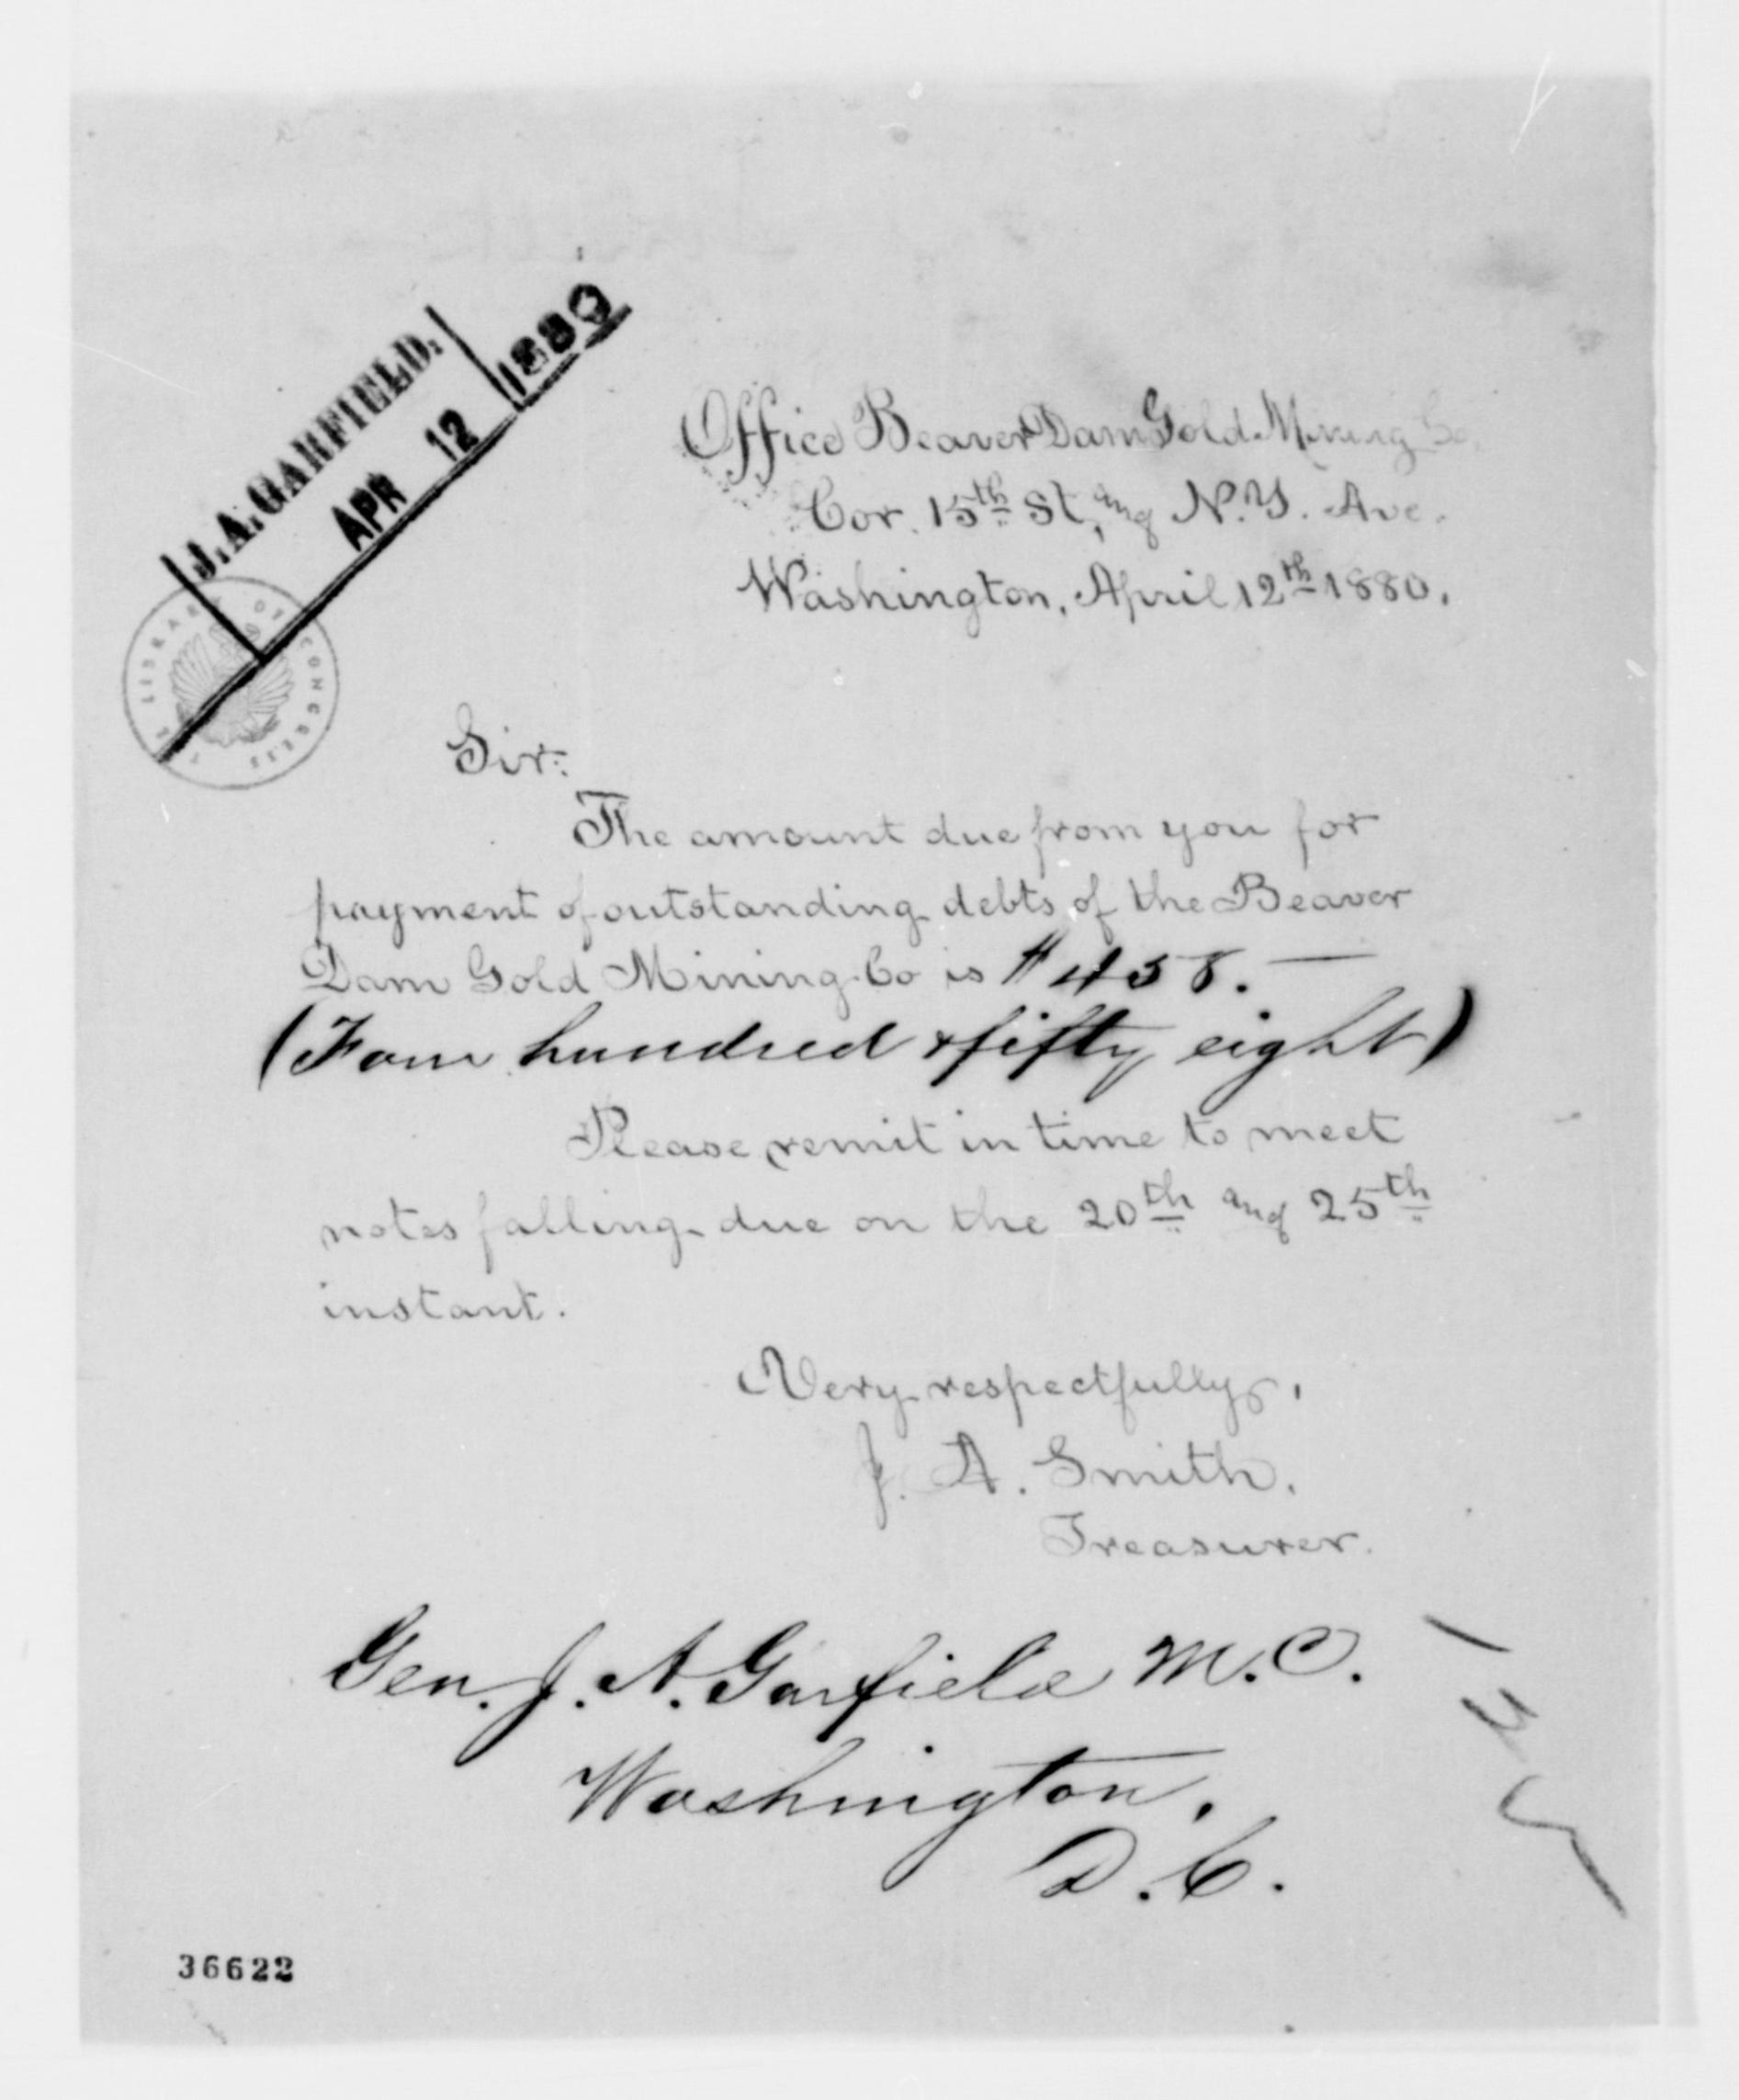 J. A. GARFIELD.
APR 12 1880
THE LIBRARY OF CONGRESS
Office Beaver Dam Gold Mining Co.
Cor. 15th St, and N.Y. Ave.
Washington, April 12th 1880.
Sir:
The amount due from you for
payment of outstanding debts of the Beaver
Dam Gold Mining Co is $458. —
(Four hundred & fifty eight)
Please remit in time to meet
notes falling due on the 20th and 25th
instant.
Very respectfully,
J. A. Smith.
Treasurer.
Gen. J. A. Garfield M.C.
Washington,
D.C.
36622